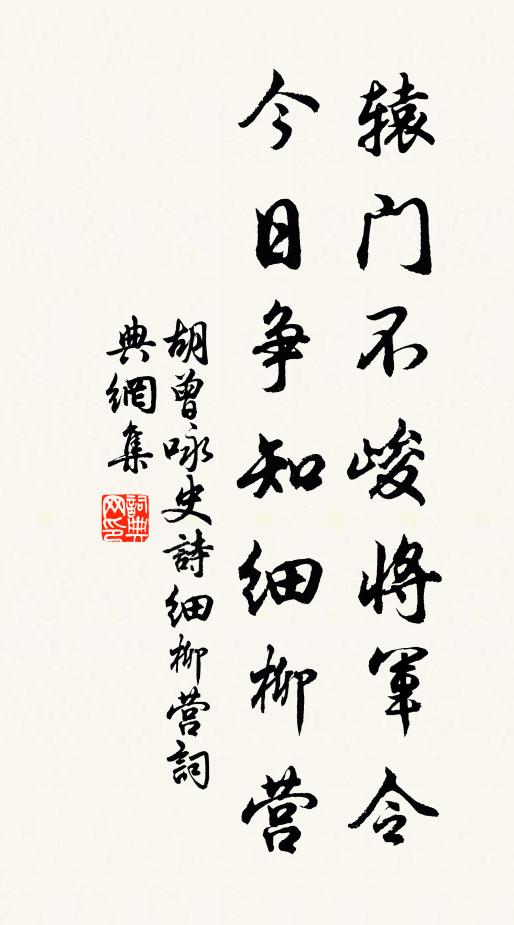 辕门不峻将軍令
今日争知细柳营
胡曾咏史詩细柳营詞
典網集
詞典网印